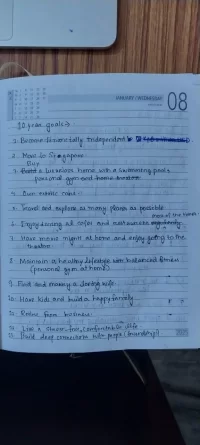 JANUARY / WEDNESDAY
08
10 year goals :-
1. Become financially independent
2. Move to Singapore
Buy
3. Build a luxurious home with a swimming pool,
personal gym and home theatre
4. Own exotic cars
5. Travel and explore as many places as possible
most of the times
6. Enjoy dining at cafes and restaurants regularly
7. Have movie night at home and enjoy going to the
theatre
8. Maintain a healthy lifestyle with balanced fitness
(personal gym at home)
9. Find and marry a loving wife
10. Have kids and build a happy family
11. Retire from business
12. Live a stress-free, comfortable life
13. Build deep connections with people (friendships)
2025